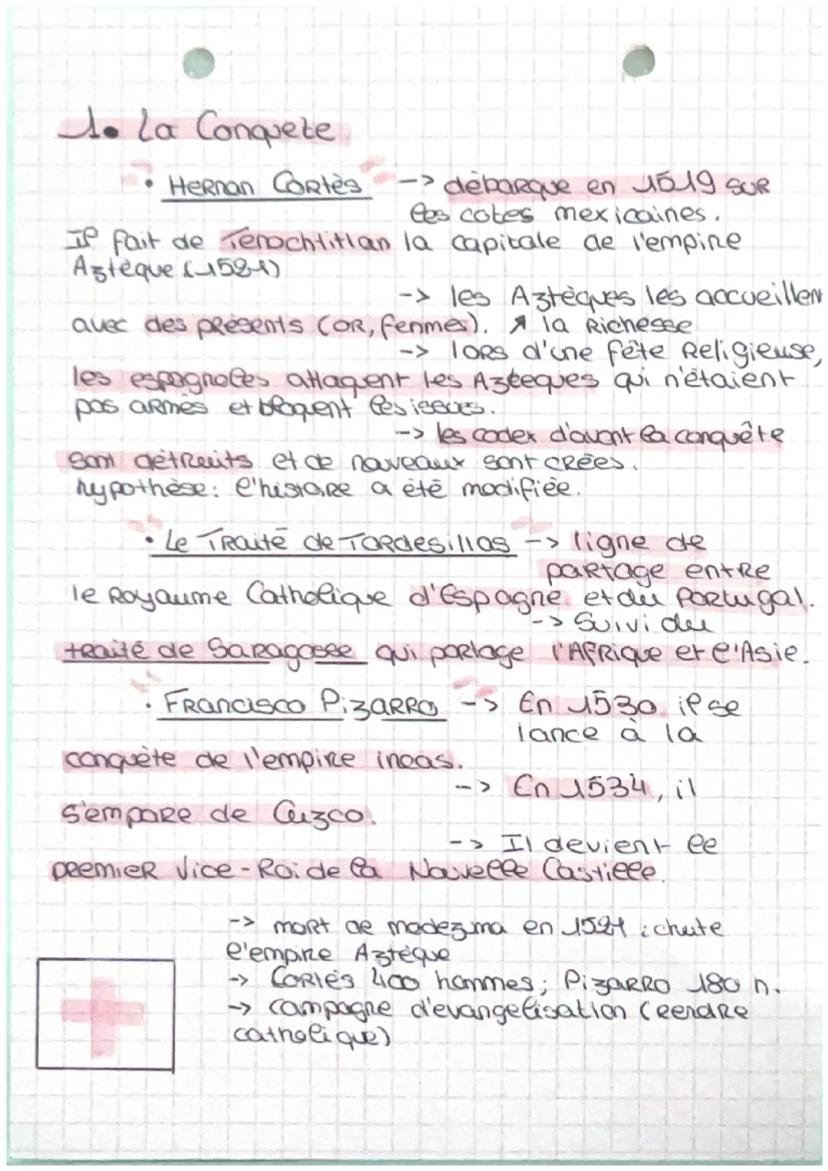 1. La Conquete
• Hernan Cortès -> débarque en 1519 sur
les cotes mexicaines.
Il fait de Tenochtitlan la capitale de l'empire
Aztèque (1521)
-> les Aztèques les accueillen
avec des présents (or, femmes). ↗ la Richesse
-> lors d'une fête Religieuse,
les espagnoles attaquent les Azteques qui n'étaient
pas armés et bloquent les issues.
-> les codex d'avant la conquête
sont détruits et de nouveaux sont crées.
hypothèse: l'histoire a été modifiée.
• Le Traité de Tordesillas -> ligne de
partage entre
le Royaume Catholique d'Espagne et du Portugal.
-> Suivi du
traité de Saragosse qui partage l'Afrique et l'Asie.
• Francisco Pizarro -> En 1530 il se
lance à la
conquète de l'empire incas.
-> En 1534, il
s'empare de Cuzco.
-> Il devient le
premier Vice-Roi de la Nouvelle Castille
-> mort de moctezuma en 1521 : chute
l'empire Aztèque
-> Cortès 400 hommes; Pizarro 180 h.
-> campagne d'evangelisation (rendre
catholique)